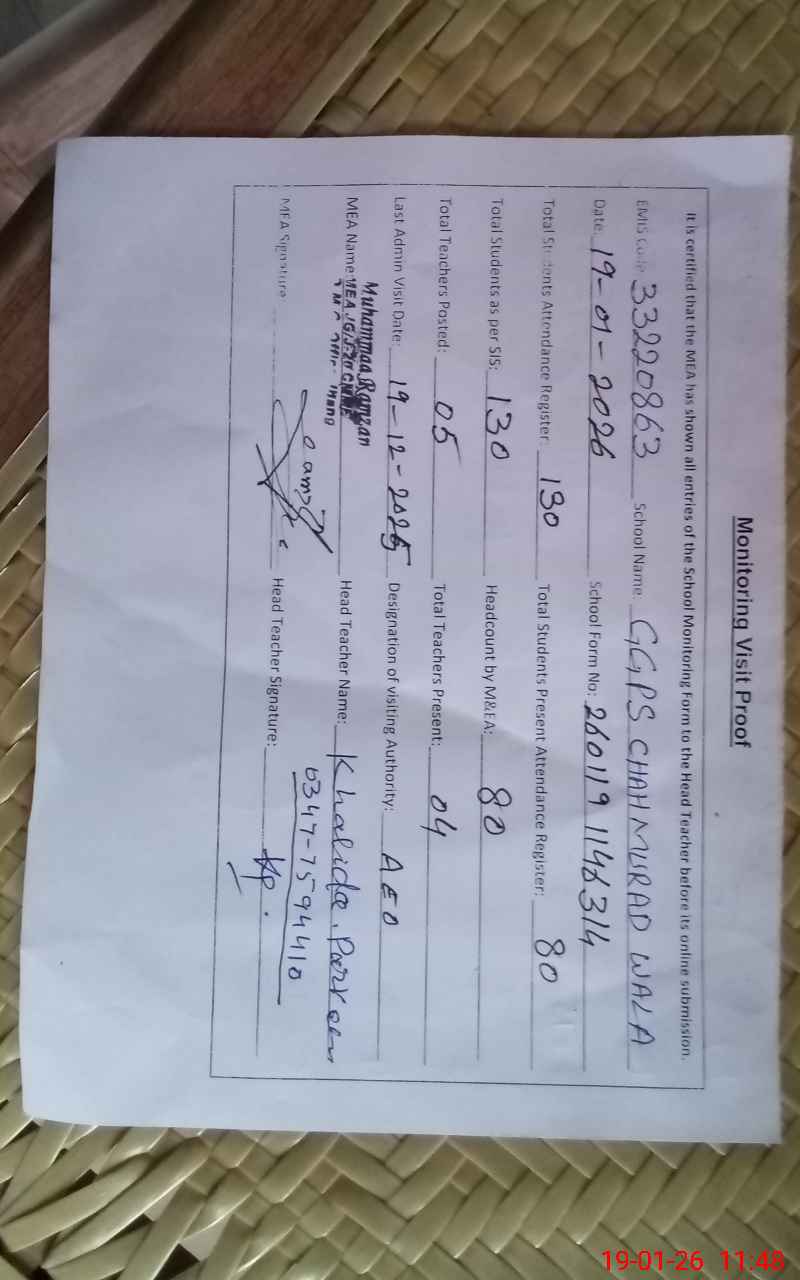 Monitoring Visit Proof
It is certified that the MEA has shown all entries of the School Monitoring Form to the Head Teacher before its online submission.
EMIS Code 33220863 School Name: GGPS CHAH MURAD WALA
Date: 19-01-2026 School Form No: 260119 1146314
Total Students Attendance Register: 130 Total Students Present Attendance Register: 80
Total Students as per SIS: 130 Headcount by M&EA: 80
Total Teachers Posted: 05 Total Teachers Present: 04
Last Admin Visit Date: 19-12-2025 Designation of visiting Authority: AEO
Muhammad Ramzan
MEA Name: Head Teacher Name: Khalida Parveen
0347-7594410
MEA Signature Head Teacher Signature: Kp.
19-01-26 11:48